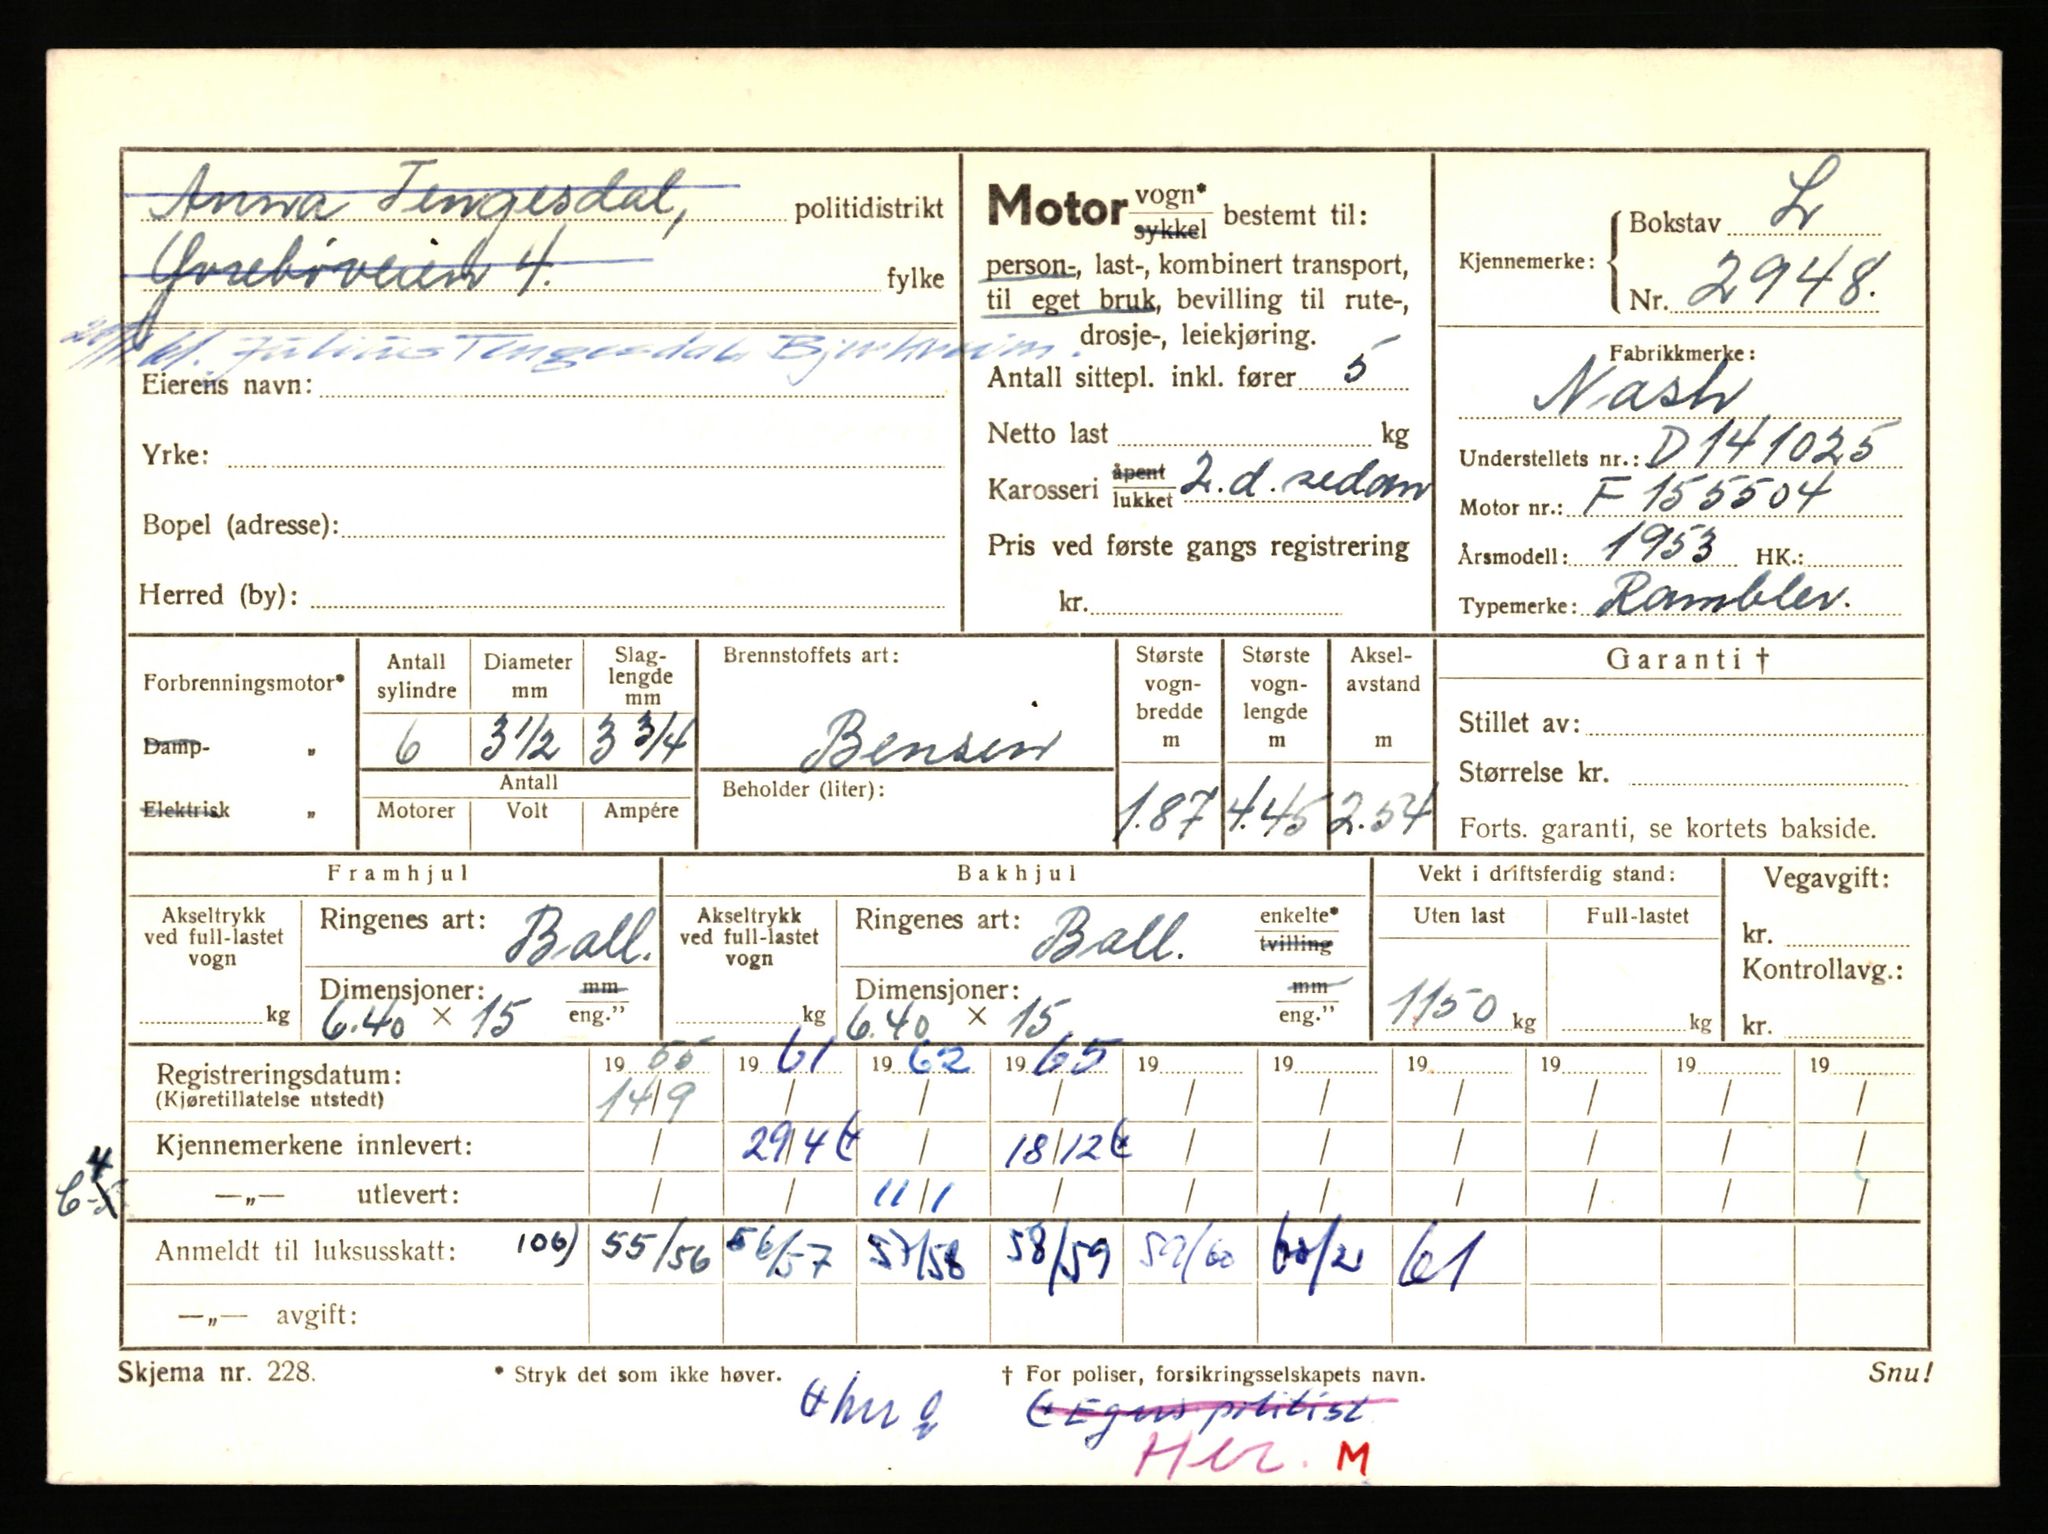 Anna Tengesdal, politidistrikt
4. fylke
Julius Tengesdal, Bjerkreim.
Eierens navn:
Yrke:
Bopel (adresse):
Herred (by):
Motor vogn* sykkel bestemt til:
person-, last-, kombinert transport,
til eget bruk, bevilling til rute-,
drosje-, leiekjøring.
Antall sittepl. inkl. fører 5
Netto last kg
Karosseri åpent lukket 2.d. sedan
Pris ved første gangs registrering
kr.
Kjennemerke: Bokstav L
Nr. 2948.
Fabrikkmerke:
Nash
Understellets nr.: D141025
Motor nr.: F 155504
Årsmodell: 1953 HK.:
Typemerke: Rambler.
Forbrenningsmotor*
Damp- „
Elektrisk „
Antall sylindre Diameter mm Slaglengde mm
6 3 1/2 3 3/4
Antall
Motorer Volt Ampére
Brennstoffets art:
Bensin
Beholder (liter):
Største vogn-bredde m Største vogn-lengde m Aksel-avstand m
1.87 4.45 2.54
Garanti †
Stillet av:
Størrelse kr.
Forts. garanti, se kortets bakside.
Framhjul
Akseltrykk ved full-lastet vogn
kg
Ringenes art: Ball.
Dimensjoner: mm eng."
6.40 × 15
Bakhjul
Akseltrykk ved full-lastet vogn
kg
Ringenes art: Ball. enkelte* tvilling
Dimensjoner: mm eng."
6.40 × 15
Vekt i driftsferdig stand:
Uten last Full-lastet
1150 kg kg
Vegavgift:
kr.
Kontrollavg.:
kr.
Registreringsdatum: 19 55 19 61 19 62 19 65 19 19 19 19 19 19
(Kjøretillatelse utstedt) 14/9 / / / / / / / / /
Kjennemerkene innlevert: / 29/4 / 18/12 / / / / / /
—„— utlevert: / / 11/1 / / / / / / /
Anmeldt til luksusskatt: 106) 55/56 56/57 57/58 58/59 59/60 61
—„— avgift:
Skjema nr. 228. * Stryk det som ikke høver. † For poliser, forsikringsselskapets navn. Snu!
Her. M